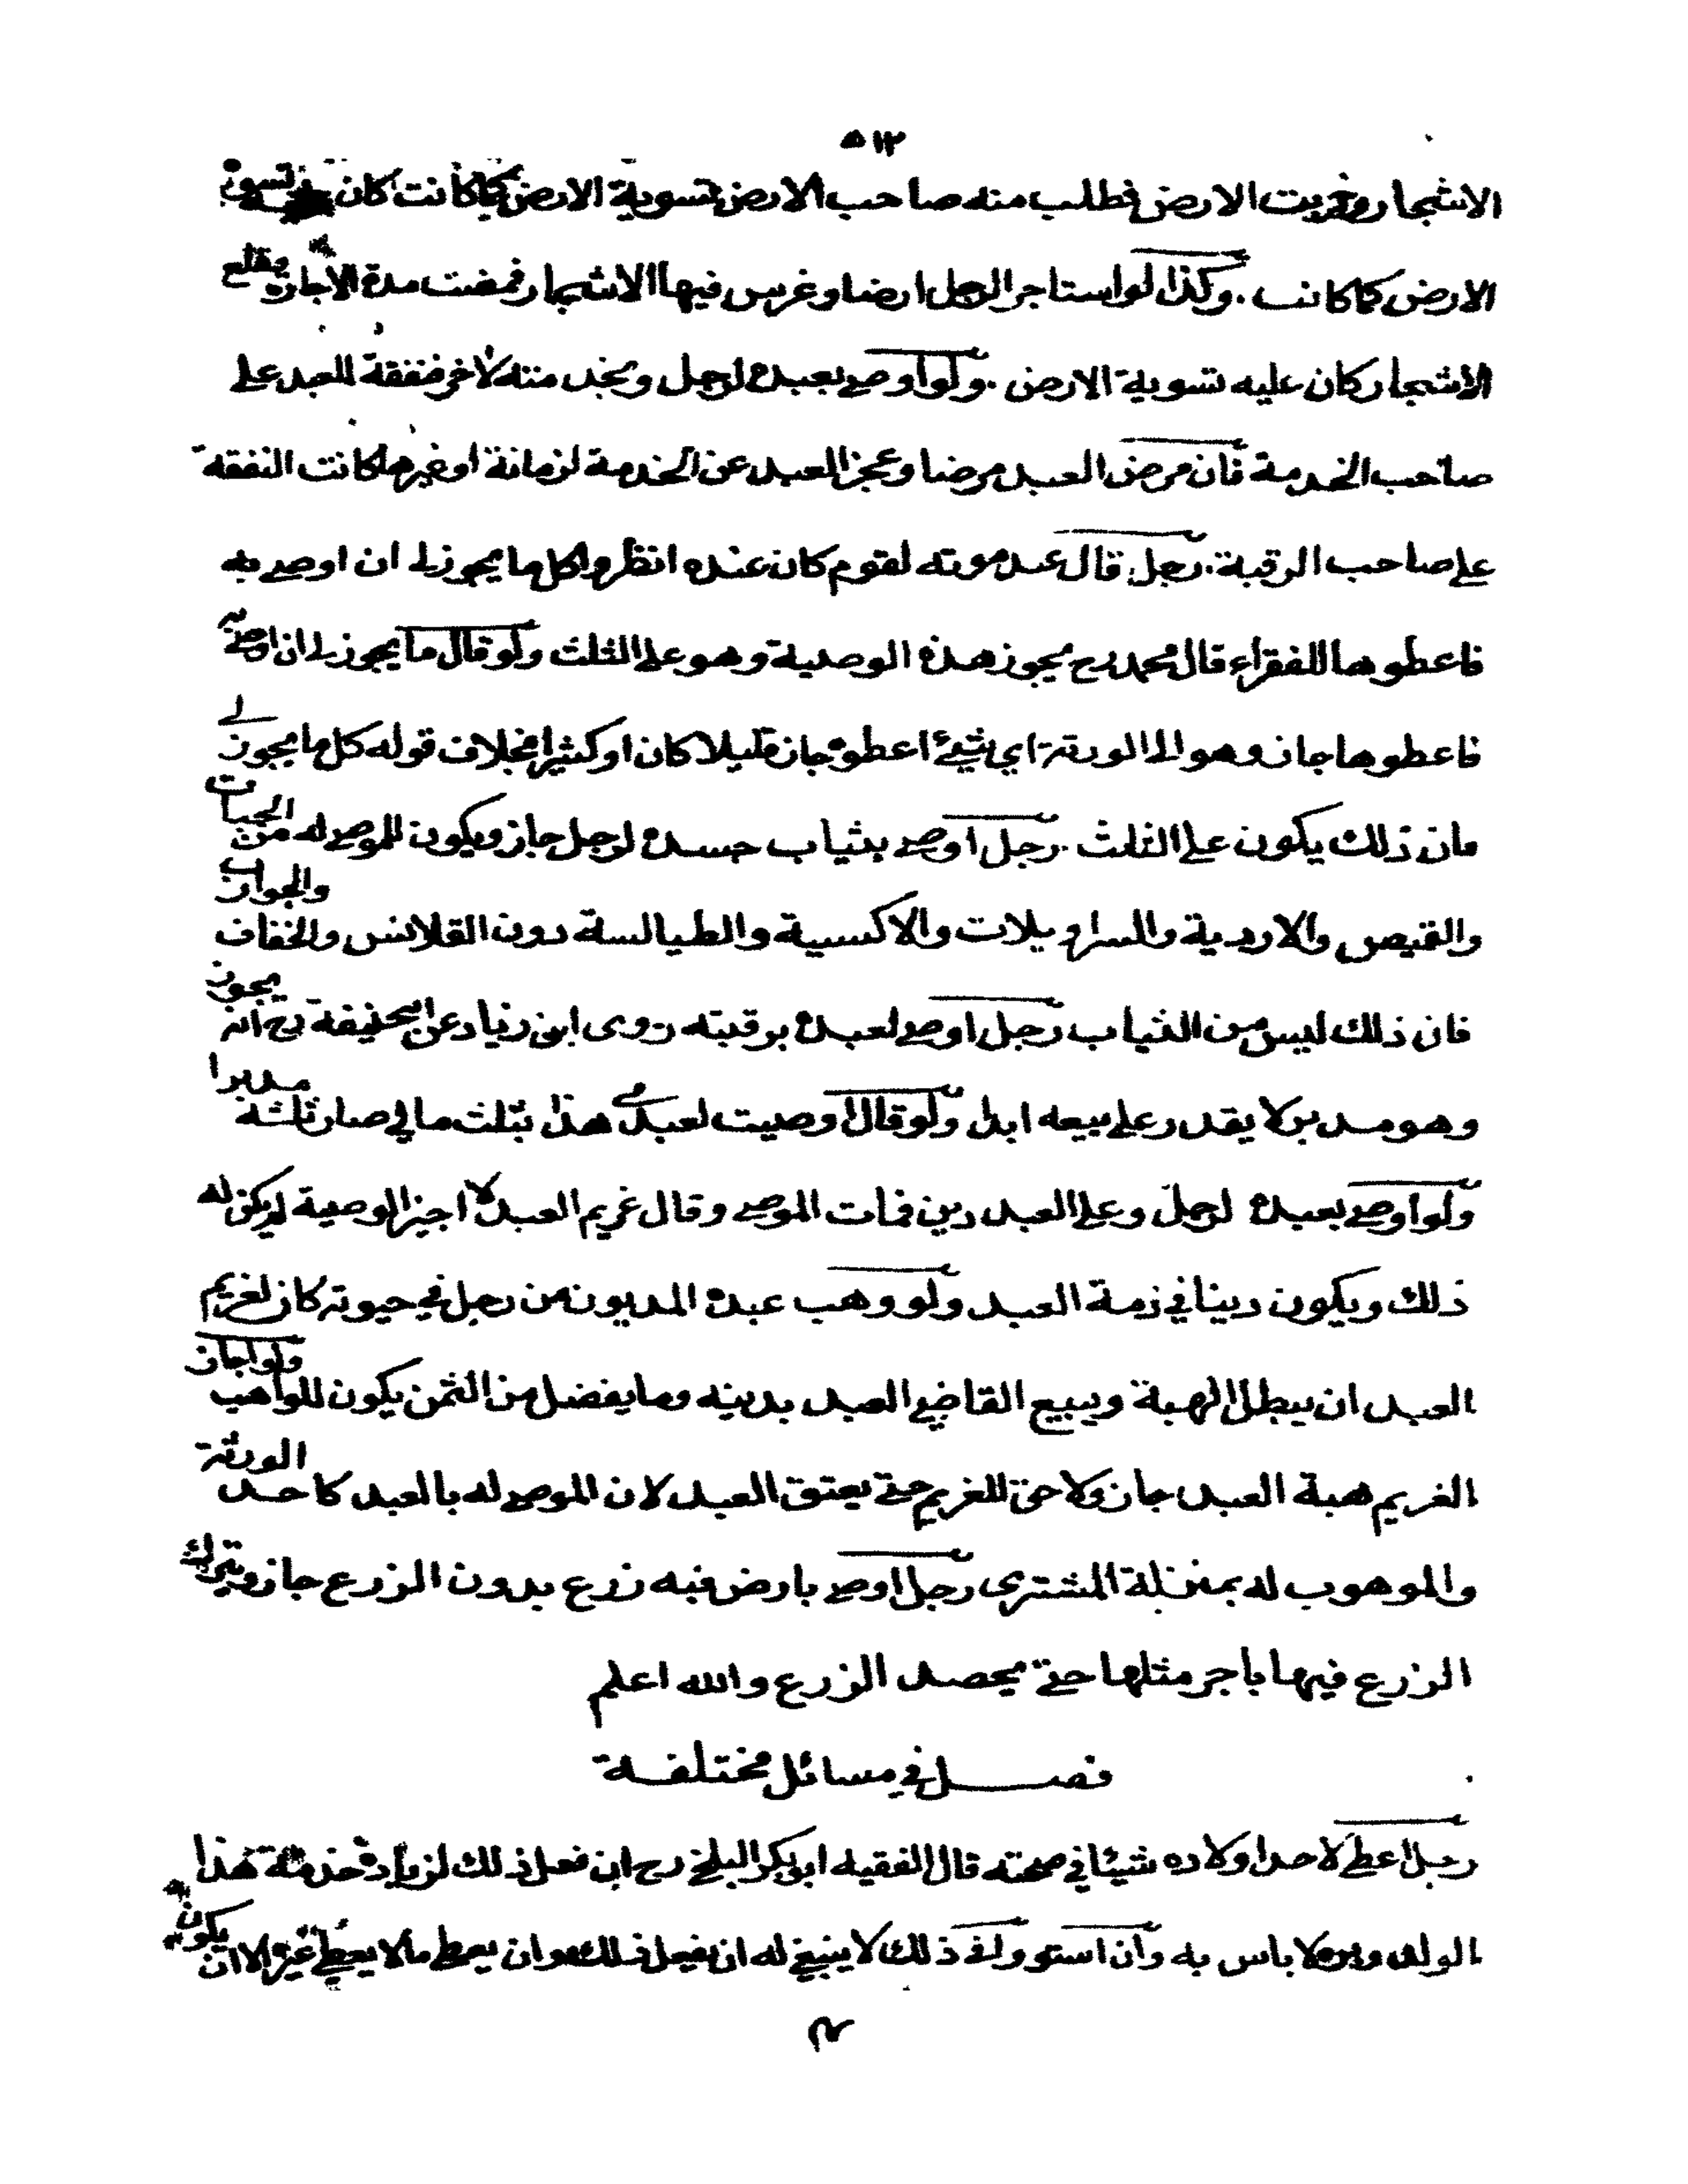 ٥١٢
الاشجار وخربت الارض فطلب منه صاحب الارض تسوية الارض كما كانت كان عليه تسوية
الارض كما كانت . وكذا لو استاجر الرجل ارضا وغرس فيها الاشجار فمضت مدة الاجارة وقلع
الاشجار كان عليه تسوية الارض . ولو اوصى بعبده لرجل وبخدمته لاخر فنفقة العبد على
صاحب الخدمة فان مرض العبد مرضا وعجز العبد عن الخدمة لزمانة او غيرها كانت النفقة
على صاحب الرقبة . رجل قال عند موته لقوم كان عنده انظروا كل ما يجوز لي ان اوصى به
فاعطوها للفقراء قال محمد رح يجوز هذه الوصية وهو على الثلث ولو قال ما يجوز لي ان اوصى به
فاعطوها جاز وهو الى الورثة اي شيء اعطوه جاز قليلا كان او كثيرا بخلاف قوله كل ما يجوز لي
فان ذلك يكون على الثلث . رجل اوصى بثياب جسده لرجل جاز ويكون للموصى له من الجبات
والقميص والاردية والسراويلات والاكسية والطيالسة دون القلانس والخفاف والجوارب
فان ذلك ليس من الثياب رجل اوصى لعبده برقبته روى ابن زياد عن ابيحنيفة رح انه يجوز
وهو مدبر لا يقدر على بيعه ابدا ولو قال اوصيت لعبدي هذا بثلث مالي صار ثلثه مدبرا
ولو اوصى بعبده لرجل وعلى العبد دين فمات الموصى وقال غريم العبد لا اجيز الوصية لم يكن له
ذلك ويكون دينا في ذمة العبد ولو وهب عبده المديون من رجل في حيوته كان لغريم
العبد ان يبطل الهبة ويبيع القاضي العبد بدينه وما يفضل من الثمن يكون للواهب ولو اجاز
الغريم هبة العبد جاز ولا حق للغريم حتى يعتق العبد لان الموصى له بالعبد كاحد الورثة
والموهوب له بمنزلة المشتري رجل اوصى بارض فيه زرع بدون الزرع جاز ويترك
الزرع فيها باجر مثلها حتى يحصد الزرع والله اعلم
فصل في مسائل مختلفة
رجل اعطى لاحد اولاده شيئا في صحته قال الفقيه ابو بكر البلخي رح ان فعل ذلك لزيادة خدمة هذا
الولد وبره لا باس به وان استووا في ذلك لا ينبغي له ان يفعل ذلك وان يعطى مالا يعطي غيره الا ان يكون